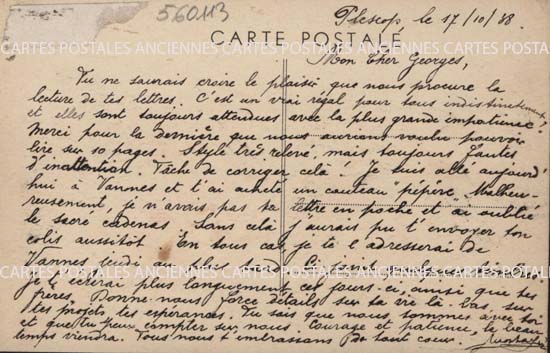 560113
Plescop, le 17/10/38
CARTE POSTALE
Mon Cher Georges,
Tu ne saurais croire le plaisir que nous procure la
lecture de tes lettres. C'est un vrai régal pour tous indistinctement
et elles sont toujours attendues avec la plus grande impatience.
Merci pour la dernière que nous aurions voulu pouvoir
lire sur 10 pages. Style très relevé, mais toujours fautes
d'inattention. Tâche de corriger cela. Je suis allé aujourd'
hui à Vannes et t'ai acheté un couteau "pépère". Malheu-
reusement, je n'avais pas ta lettre en poche et ai oublié
le sacré cadenas. Sans cela j'aurais pu t'envoyer ton
colis aussitôt. En tous cas je te l'adresserai de
Vannes jeudi au plus tard.
Je t'écrirai plus longuement ces jours-ci, ainsi que tes
frères. Donne-nous force détails sur ta vie là-bas, sur
tes projets, tes espérances. Tu sais que nous sommes avec toi
et que tu peux compter sur nous. Courage et patience, le beau
temps viendra. Tous nous t'embrassons de tout coeur.
CARTES POSTALES ANCIENNES CARTES POSTALES ANCIENNES